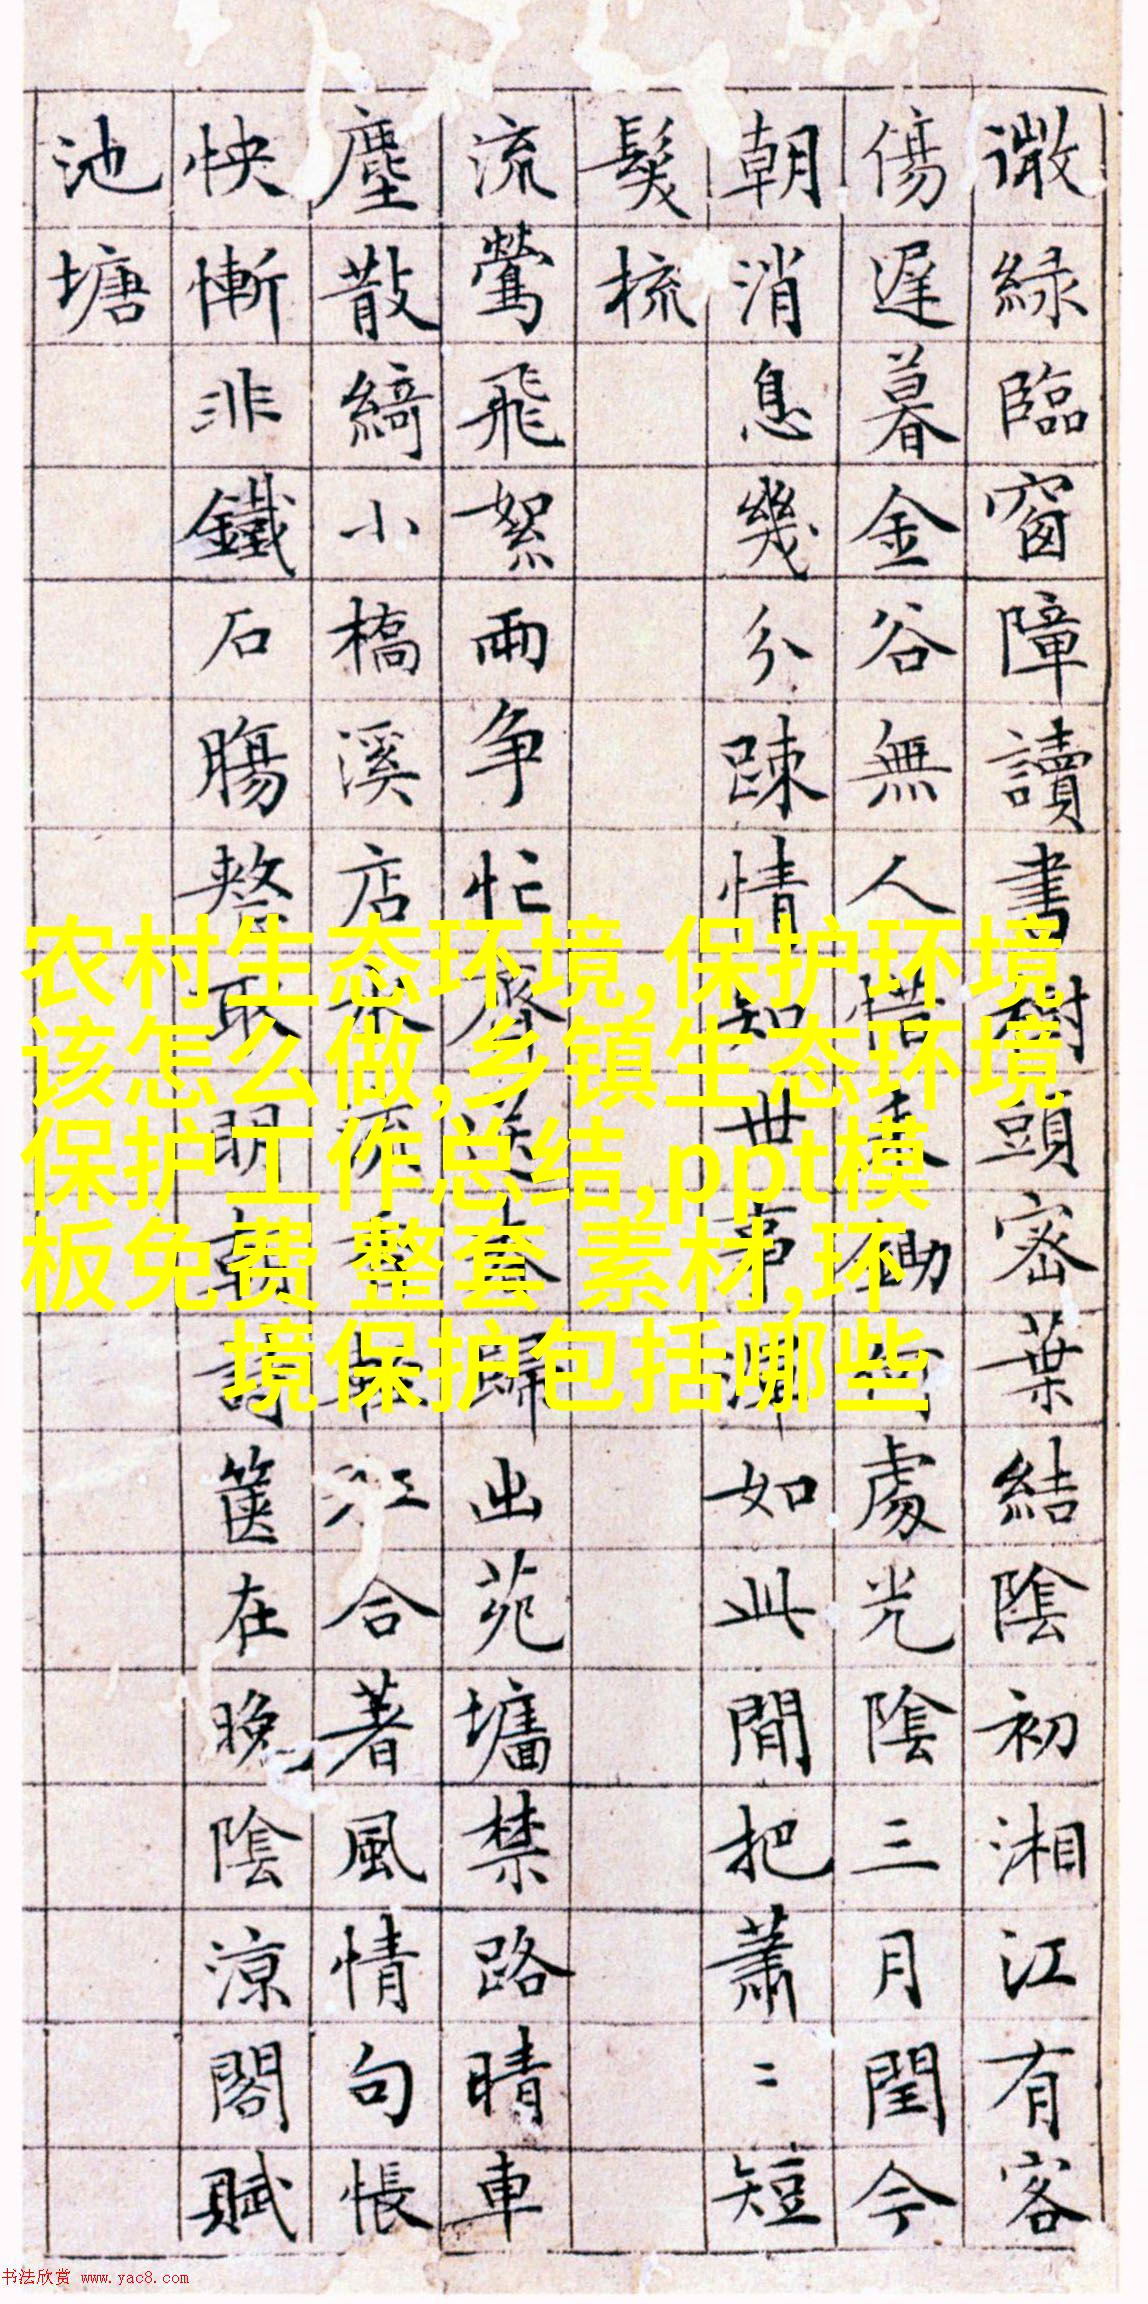 微綠臨窗障讀書樹頭密葉結陰初湘江有客
傷遲暮金谷無人惜鋤何處光陰三月閏今
朝消息幾分踈情知世事渾如此閒把蕭〻短
髮梳
流鶯飛絮兩争忙齊送春歸出苑墻禁路晴車
塵散綺小橋溪店水流江合著風情句悵
怏慚非鐵石腸整取明朝詩篋在晚陰涼閣賦
池塘
农村生态环境,保护环境
该怎么做,乡镇生态环境
保护工作总结,ppt模
板免费 整套 素材,环
境保护包括哪些
书法欣赏 www.yac8.com